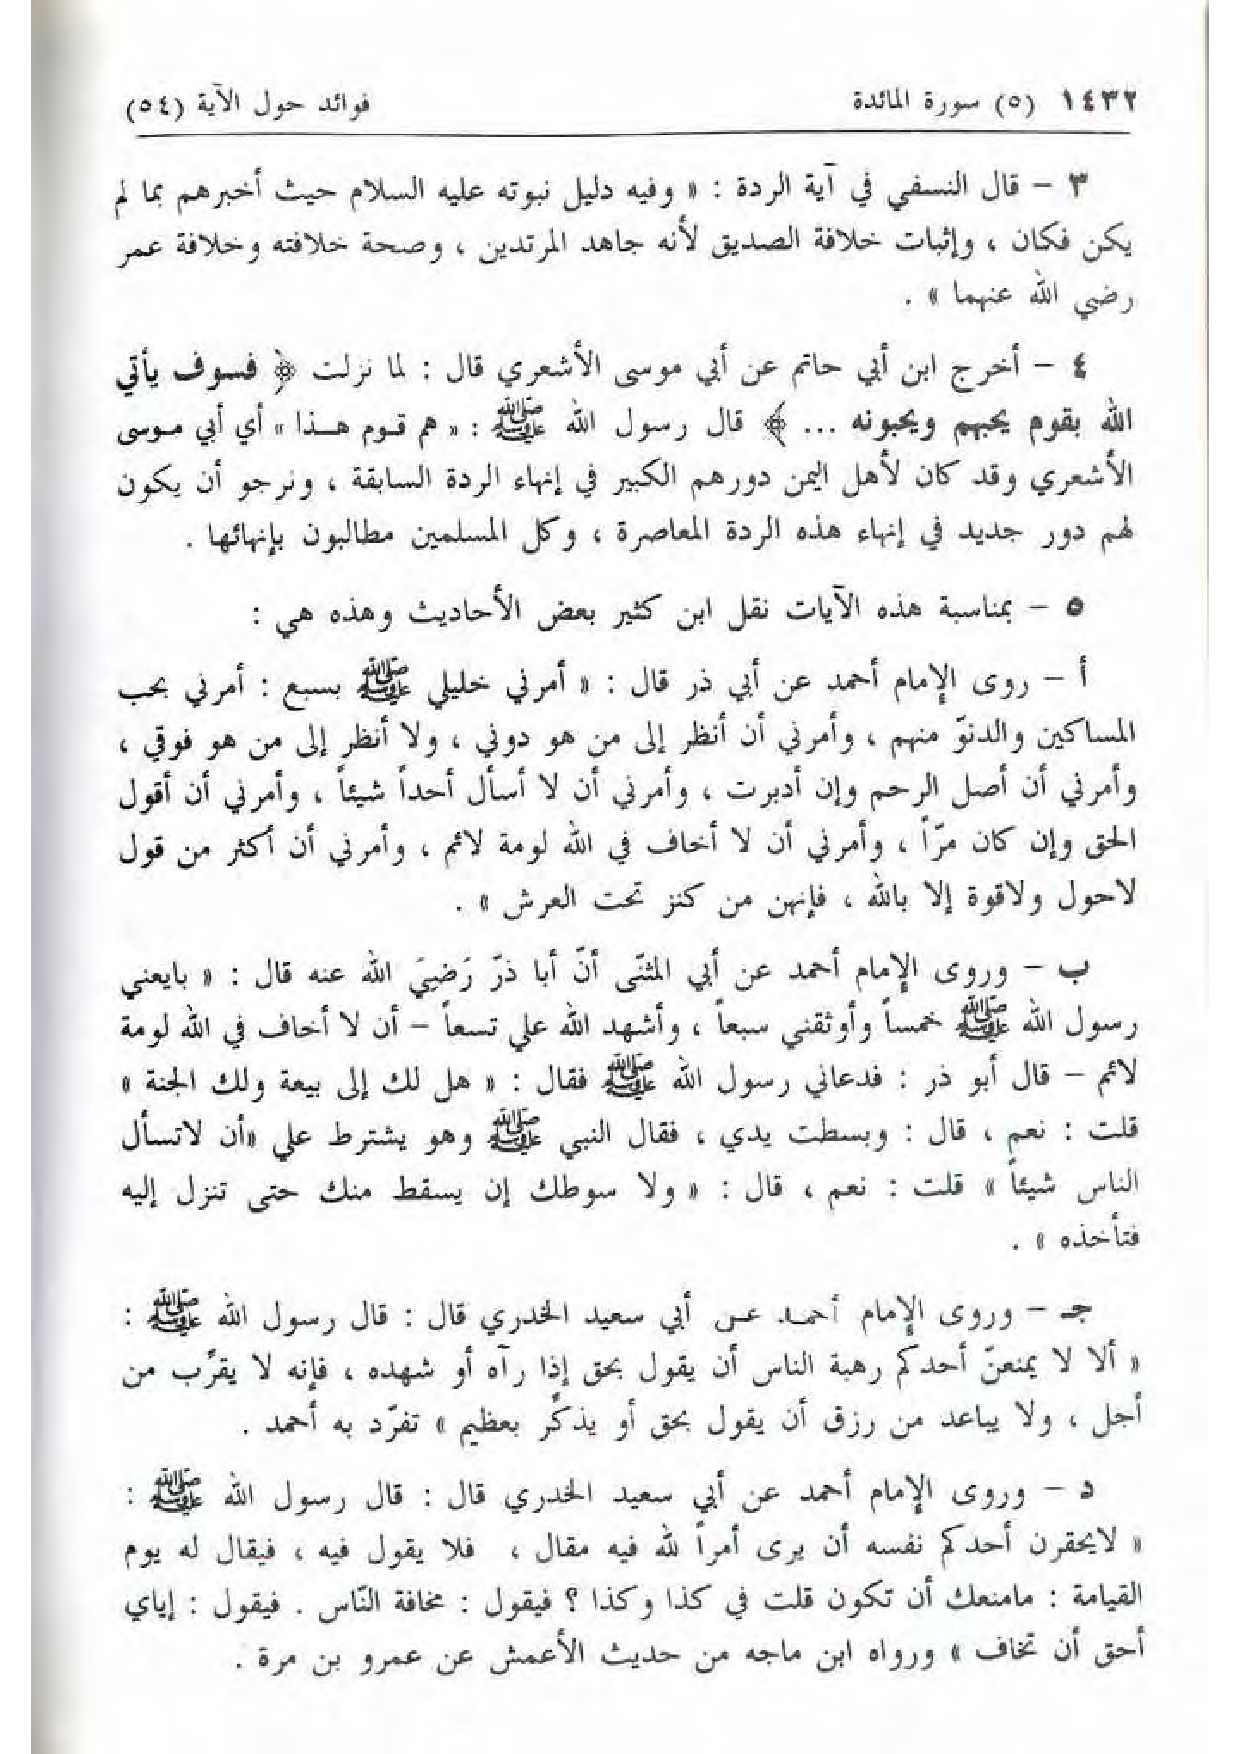 ١٤٣٢ (٥) سورة المائدة فوائد حول الآية (٥٤)
٣ – قال النسفي في آية الردة : « وفيه دليل نبوته عليه السلام حيث أخبرهم بما لم
يكن فكان ، وإثبات خلافة الصديق لأنه جاهد المرتدين ، وصحة خلافته وخلافة عمر
رضي الله عنهما » .
٤ – أخرج ابن أبي حاتم عن أبي موسى الأشعري قال : لما نزلت ﴿ فسوف يأتي
الله بقوم يحبهم ويحبونه ... ﴾ قال رسول الله ﷺ : « هم قوم هذا » أي أبي موسى
الأشعري وقد كان لأهل اليمن دورهم الكبير في إنهاء الردة السابقة ، ونرجو أن يكون
لهم دور جديد في إنهاء هذه الردة المعاصرة ، وكل المسلمين مطالبون بإنهائها .
٥ – بمناسبة هذه الآيات نقل ابن كثير بعض الأحاديث وهذه هي :
أ – روى الإمام أحمد عن أبي ذر قال : « أمرني خليلي ﷺ بسبع : أمرني بحب
المساكين والدنوّ منهم ، وأمرني أن أنظر إلى من هو دوني ، ولا أنظر إلى من هو فوقي ،
وأمرني أن أصل الرحم وإن أدبرت ، وأمرني أن لا أسأل أحداً شيئاً ، وأمرني أن أقول
الحق وإن كان مرّاً ، وأمرني أن لا أخاف في الله لومة لائم ، وأمرني أن أكثر من قول
لاحول ولاقوة إلا بالله ، فإنهن من كنز تحت العرش » .
ب – وروى الإمام أحمد عن أبي المثنّى أنّ أبا ذرّ رَضيَ الله عنه قال : « بايعني
رسول الله ﷺ خمساً وأوثقني سبعاً ، وأشهد الله علي تسعاً – أن لا أخاف في الله لومة
لائم – قال أبو ذر : فدعاني رسول الله ﷺ فقال : « هل لك إلى بيعة ولك الجنة »
قلت : نعم ، قال : وبسطت يدي ، فقال النبي ﷺ وهو يشترط علي «أن لاتسأل
الناس شيئاً » قلت : نعم ، قال : « ولا سوطك إن يسقط منك حتى تنزل إليه
فتأخذه » .
جـ – وروى الإمام أحمد عن أبي سعيد الخدري قال : قال رسول الله ﷺ :
« ألا لا يمنعنّ أحدكم رهبة الناس أن يقول بحق إذا رآه أو شهده ، فإنه لا يقرِّب من
أجل ، ولا يباعد من رزق أن يقول بحق أو يذكِّر بعظيم » تفرّد به أحمد .
د – وروى الإمام أحمد عن أبي سعيد الخدري قال : قال رسول الله ﷺ :
« لايحقرن أحدكم نفسه أن يرى أمراً لله فيه مقال ، فلا يقول فيه ، فيقال له يوم
القيامة : مامنعك أن تكون قلت في كذا وكذا ؟ فيقول : مخافة النّاس . فيقول : إياي
أحق أن تخاف » ورواه ابن ماجه من حديث الأعمش عن عمرو بن مرة .